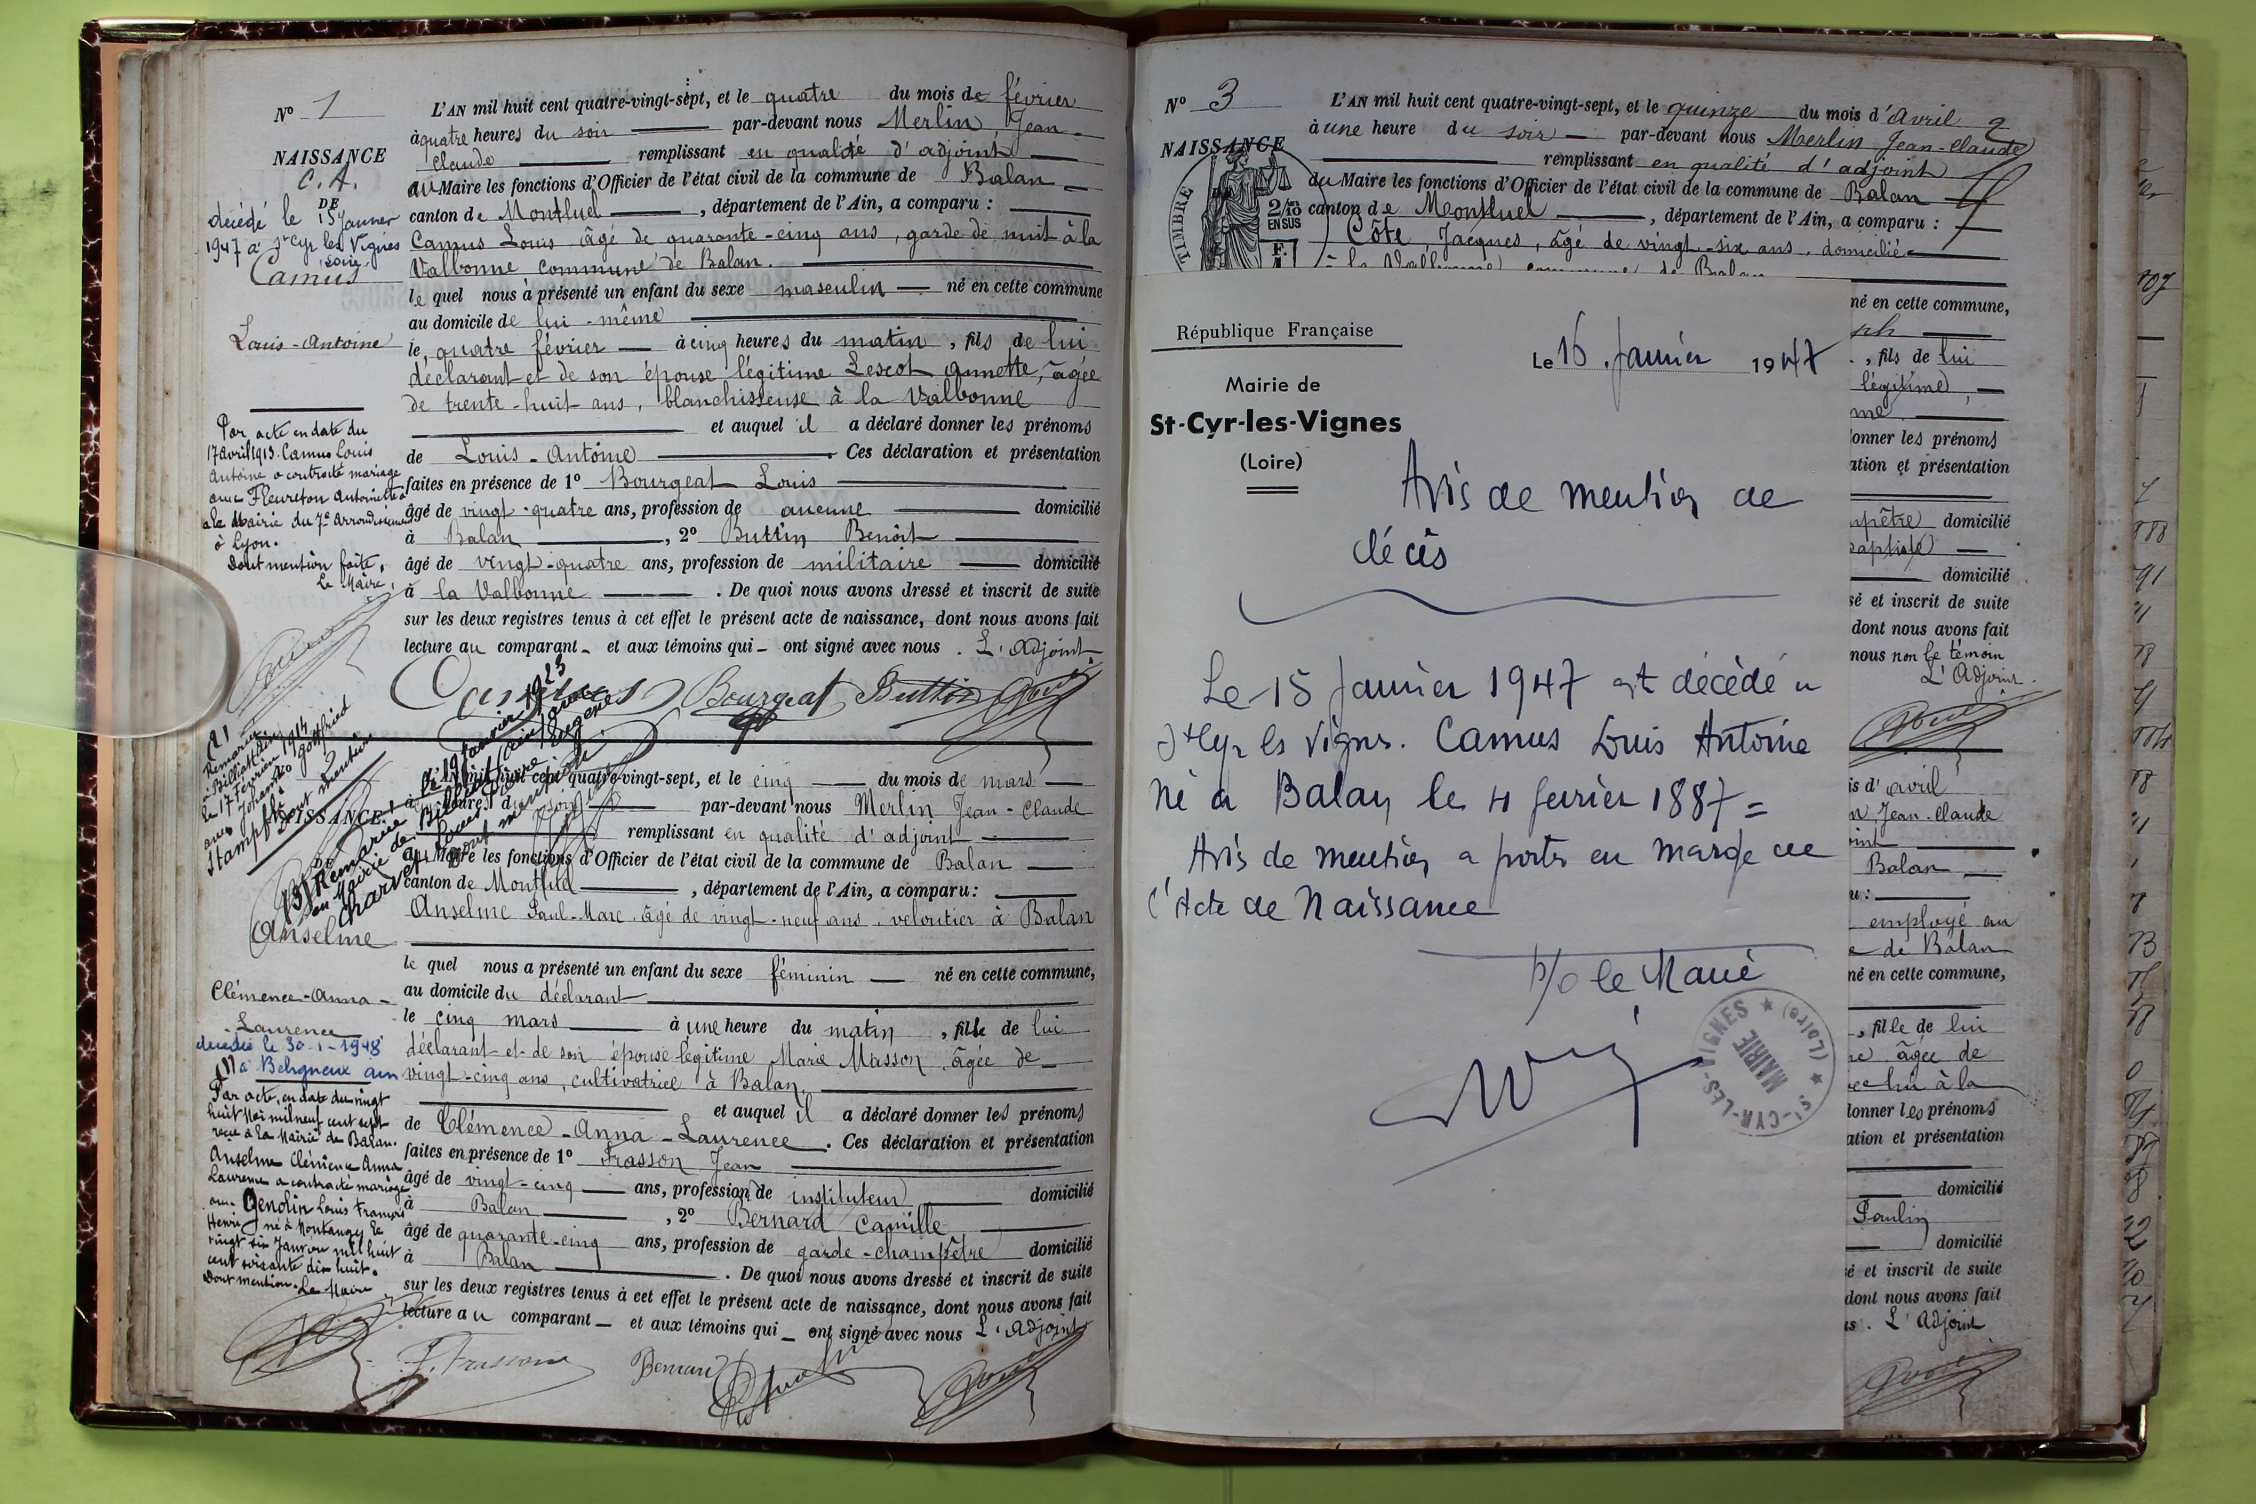 N° 1
NAISSANCE
C. A.
DE
décédé le 15 Janvier
1947 à St Cyr les Vignes
Loire
Camus
Louis-Antoine
L'AN mil huit cent quatre-vingt-sept, et le quatre du mois de février
à quatre heures du soir par-devant nous Merlin, Jean-
Claude remplissant en qualité d'adjoint
au Maire les fonctions d'Officier de l'état civil de la commune de Balan
canton de Montluel, département de l'Ain, a comparu :
Camus Louis âgé de quarante-cinq ans, garde de nuit à la
Valbonne commune de Balan.
le quel nous à présenté un enfant du sexe masculin né en cette commune
au domicile de lui-même
le, quatre février à cinq heures du matin, fils de lui
déclarant et de son épouse légitime Lescot Annette, âgée
de trente-huit ans, blanchisseuse à la Valbonne
et auquel il a déclaré donner les prénoms
de Louis-Antoine. Ces déclaration et présentation
faites en présence de 1° Bourgeat Louis
âgé de vingt-quatre ans, profession de aucune domicilié
à Balan, 2° Buttin Benoît
âgé de vingt-quatre ans, profession de militaire domicilié
à la Valbonne. De quoi nous avons dressé et inscrit de suite
sur les deux registres tenus à cet effet le présent acte de naissance, dont nous avons fait
lecture au comparant et aux témoins qui ont signé avec nous. L'Adjoint
Camus Bourgeat Buttin
Par acte en date du
17 avril 1913. Camus Louis
Antoine a contracté mariage
avec Fleureton Antoinette
à la Mairie du 7e Arrondissement
à Lyon.
Dont mention faite,
Le Maire,
Remariée
à Billiat (Ain)
le 17 Février 1914
avec Johanko Gottfried
Stampfli
Dont mention
Remariée le 19 Janvier 1923
en Mairie de Billiat (Ain) avec
Charvet Louis Pierre Eugène
Dont mention
NAISSANCE
DE
Anselme
Clémence-Anna-
Laurence
décédée le 30-1-1948
à Béligneux ain
L'AN mil huit cent quatre-vingt-sept, et le cinq du mois de mars
heures du soir par-devant nous Merlin Jean-Claude
remplissant en qualité d'adjoint
au Maire les fonctions d'Officier de l'état civil de la commune de Balan
canton de Montluel, département de l'Ain, a comparu :
Anselme Paul-Marc, âgé de vingt-neuf ans, veloutier à Balan
le quel nous a présenté un enfant du sexe féminin né en cette commune,
au domicile du déclarant
le cinq mars à une heure du matin, fille de lui
déclarant et de son épouse légitime Marie Masson, âgée de
vingt-cinq ans, cultivatrice à Balan
et auquel il a déclaré donner les prénoms
de Clémence-Anna-Laurence. Ces déclaration et présentation
faites en présence de 1° Frasson Jean
âgé de vingt-cinq ans, profession de instituteur domicilié
à Balan, 2° Bernard Camille
âgé de quarante-cinq ans, profession de garde-champêtre domicilié
à Balan. De quoi nous avons dressé et inscrit de suite
sur les deux registres tenus à cet effet le présent acte de naissance, dont nous avons fait
lecture au comparant et aux témoins qui ont signé avec nous L'Adjoint
J. Frasson Bernard
Par acte, en date du vingt
huit Mai mil neuf cent sept
reçu à la Mairie de Balan.
Anselme Clémence Anna
Laurence a contracté mariage
avec Genolin Louis François
Henri né à Montanay le
vingt six Janvier mil huit
cent soixante dix huit.
Dont mention. Le Maire
N° 3
NAISSANCE
TIMBRE
2/10
EN SUS
F.
L'AN mil huit cent quatre-vingt-sept, et le quinze du mois d'Avril 2
à une heure du soir par-devant nous Merlin Jean-Claude
remplissant en qualité d'adjoint
du Maire les fonctions d'Officier de l'état civil de la commune de Balan
canton de Montluel, département de l'Ain, a comparu :
Côte, Jacques, âgé de vingt-six ans, domicilié
à la Valbonne commune de Balan
République Française
Mairie de
St-Cyr-les-Vignes
(Loire)
Le 16 Janvier 1947
Avis de mention de
décès
Le 15 Janvier 1947 est décédé à
St Cyr les Vignes. Camus Louis Antoine
né à Balan le 4 février 1887=
Avis de mention a porter en marge de
l'Acte de Naissance
P/o le Maire
ST-CYR-LES-VIGNES ★ (Loire) ★
MAIRIE
né en cette commune,
ph
, fils de lui
légitime,
me
donner les prénoms
ation et présentation
pêtre domicilié
Baptiste
domicilié
sé et inscrit de suite
dont nous avons fait
nous non le témoin
L'Adjoint.
is d'avril
n Jean-Claude
oint
Balan
u :
employé au
e de Balan
né en cette commune,
, fille de lui
âgée de
ec lui à la
donner les prénoms
ation et présentation
domicilié
Paulin
domicilié
é et inscrit de suite
dont nous avons fait
us. L'Adjoint